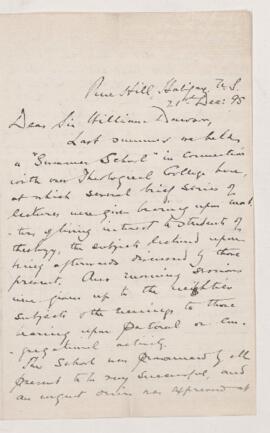 Pine Hill, Halifax, N.S.
21st Dec: 95
Dear Sir William Dawson,
Last summer we held
a "Summer School" in connection
with our Theological College here,
at which several brief series of
lectures were given bearing upon mat-
-ters of living interest to students of
theology, the subjects lectured upon
being afterwards discussed by those
present. Our morning sessions
were given up to the
subjects & the evenings to those
bearing upon pastoral or con-
-gregational activity.
The School was pronounced by all
present to be very successful, and
an urgent desire was expressed at